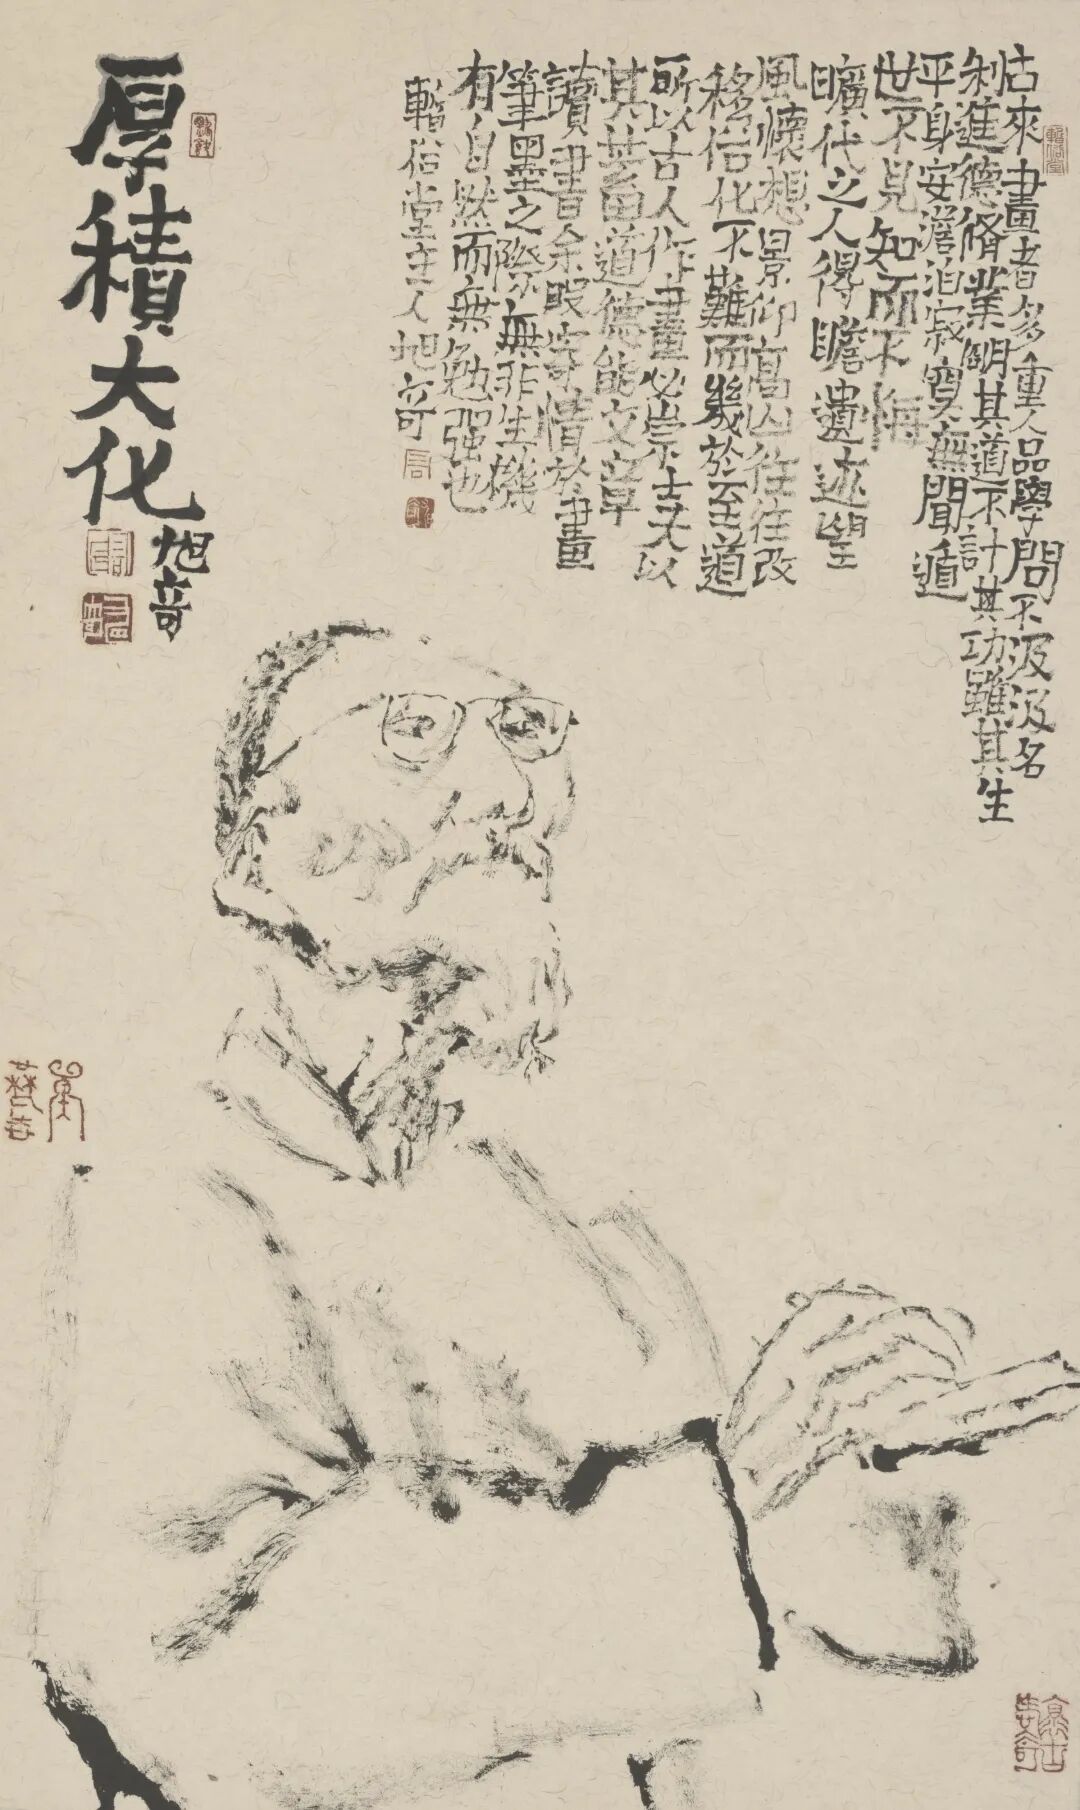 古來畫者多重人品學問不汲汲名
利進德脩業明其道不計其功雖其生
平身安澹泊寂寞無聞遁
世不見知而不悔
曠代之人得瞻遺迹望
風懷想景仰高山往往改
移俗化不難而幾於至道
所以古人作畫必崇士夫以
其蓄道德能文章
讀書余暇寄情於畫
筆墨之際無非生機
有自然而無勉強也
俗堂主人旭奇
厚積大化
旭奇